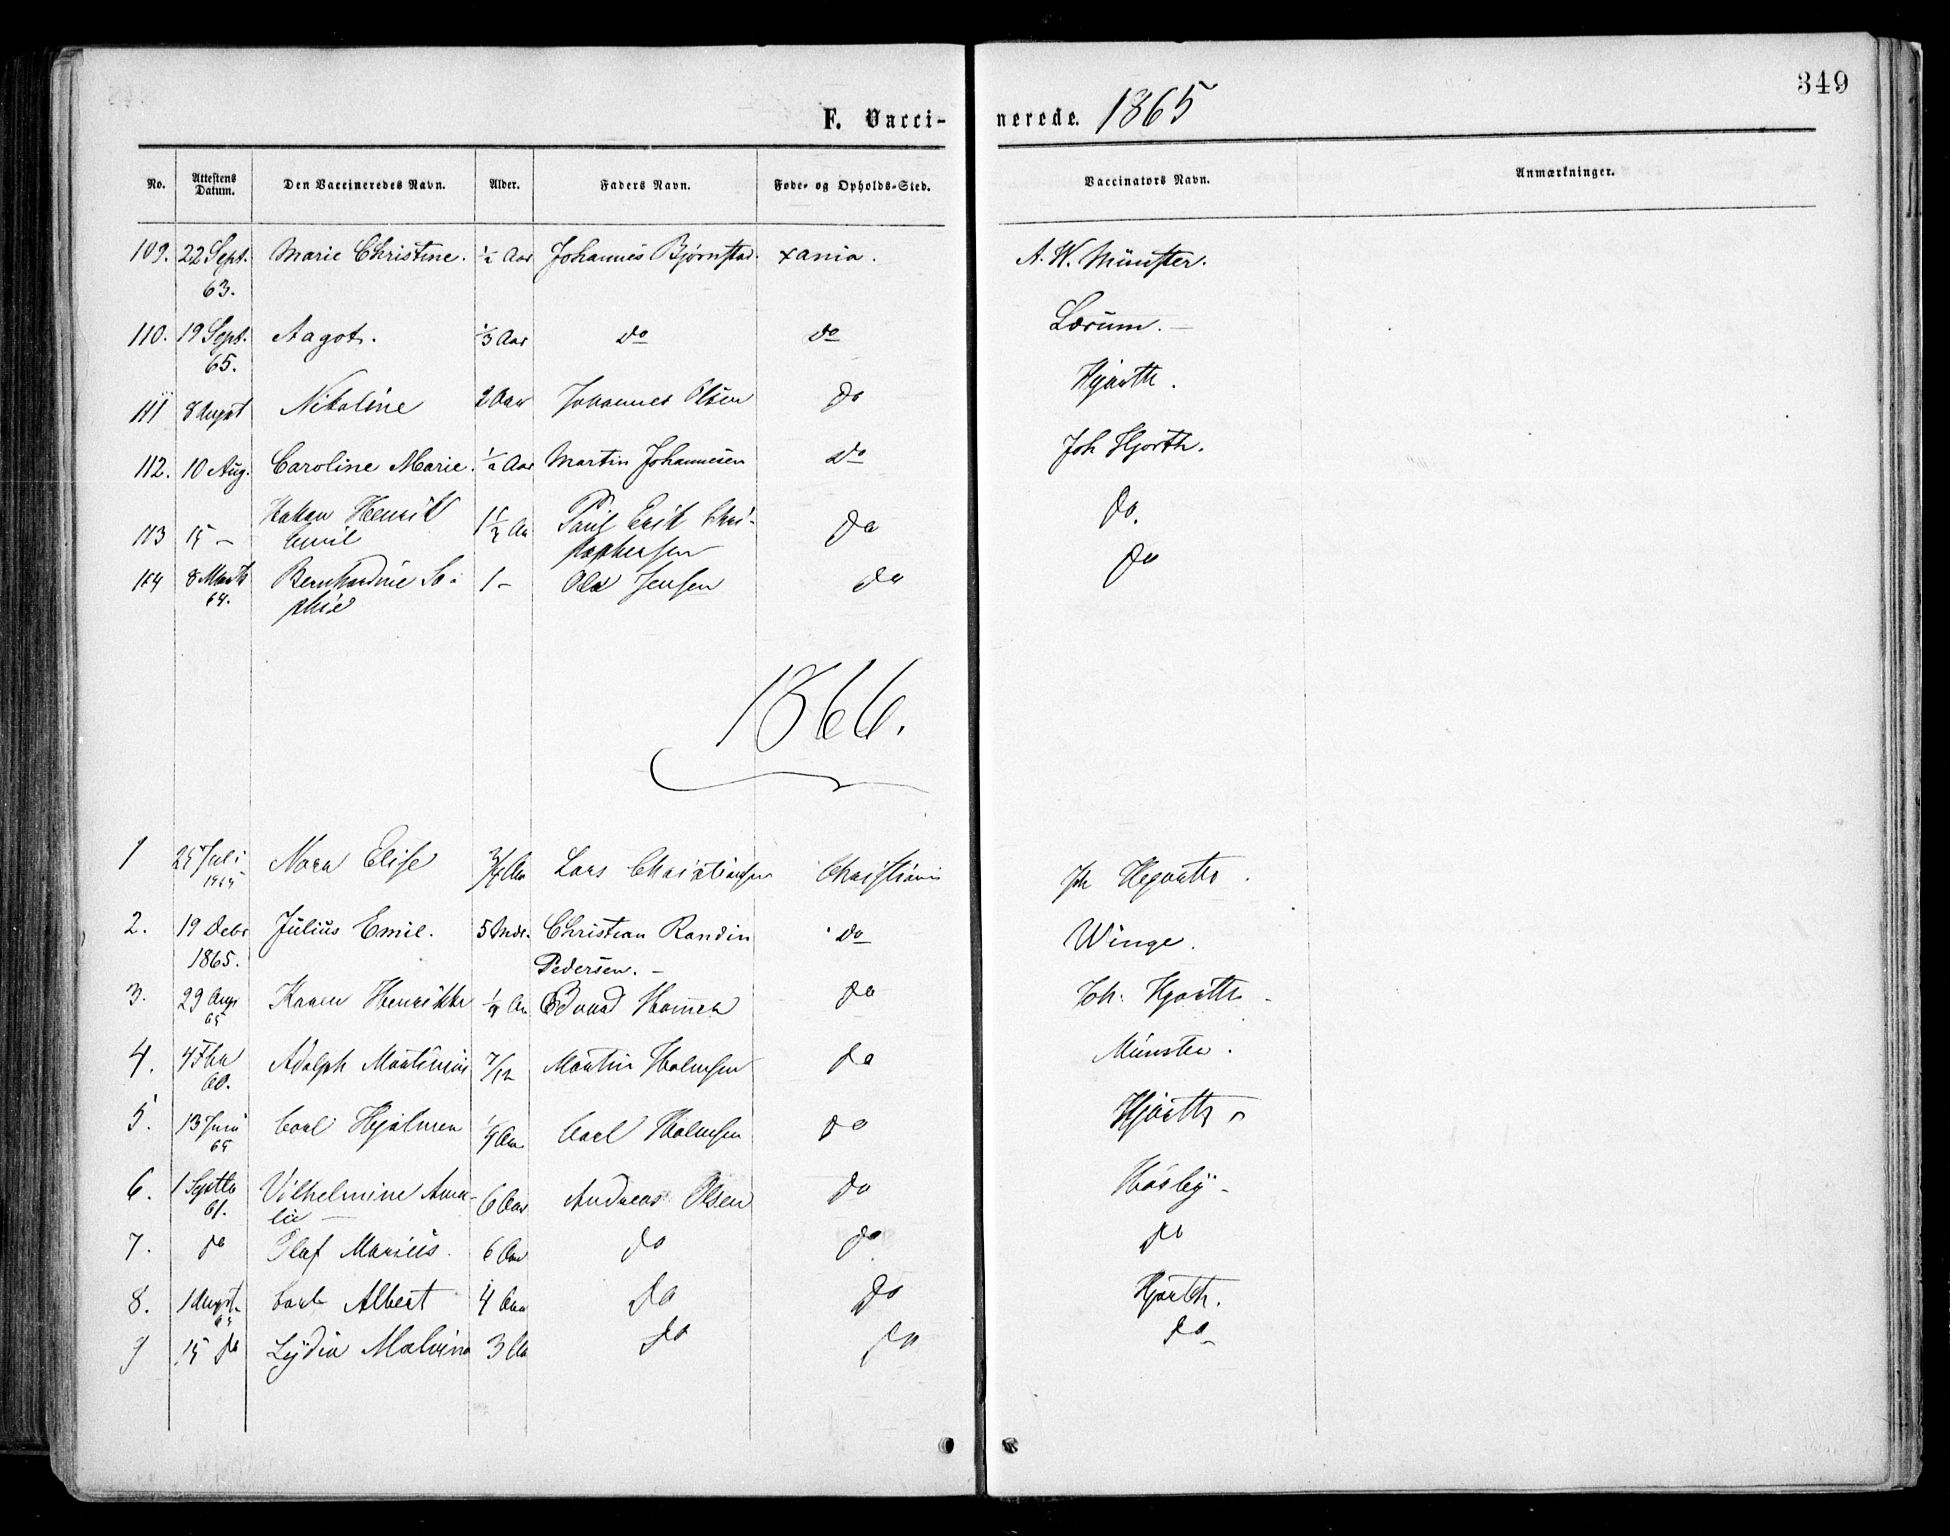 349
F. Vacci- nerede. 1865
No. Attestens Datum. Den Vaccineredes Navn. Alder. Faders Navn. Føde- og Opholds-Sted. Vaccinators Navn. Anmærkninger.
109. 22 Sept. Marie Christine. Aar Johannes Bjørnstad. Xania. A. W. Münster.
63.
110. 19 Sept. Aagot. 1/3 Aar do do Lærum. —
65.
111 8 Augst Nikoline 2 Aar Johannes Olsen do Hjorth.
112. 10 Aug. Caroline Marie. Aar Martin Johannesen do Joh Hjorth.
113 15 — Hakon Henrik 1 1/2 Aa Paul Erik Chri- do do.
Emil stophersen
114 8 Marts Bernhardine So- 1 — Ola Jensen do do
64. phie
1866.
1 25 Juli Nora Elise 3/4 Aa Lars Christiansen Christiania Joh Hjorth.
1865
2. 19 Debr Julius Emil. 5 Mdr. Christian Randin do Winge.
1865. Pedersen. —
3. 29 Aug Karen Henrikke Aa Edvard Hansen do Joh. Hjorth -
65
4. 4 Adolph Martinius 7/12 Martin Holmsen do Münster.
60.
5. 13 Juni Carl Hjalmar Aa Carl Holmsen do Hjorth
65
6. 1 Septbr Vilhelmine Ama- 6 Aar Andreas Olsen do -
61. lie —
7. do Olaf Marius. 6 Aar do do do
8. 1 Augst. Carl Albert 4 Aar do do Hjorth.
65
9 15 do Lydia Malvina 3 Aa do do do -